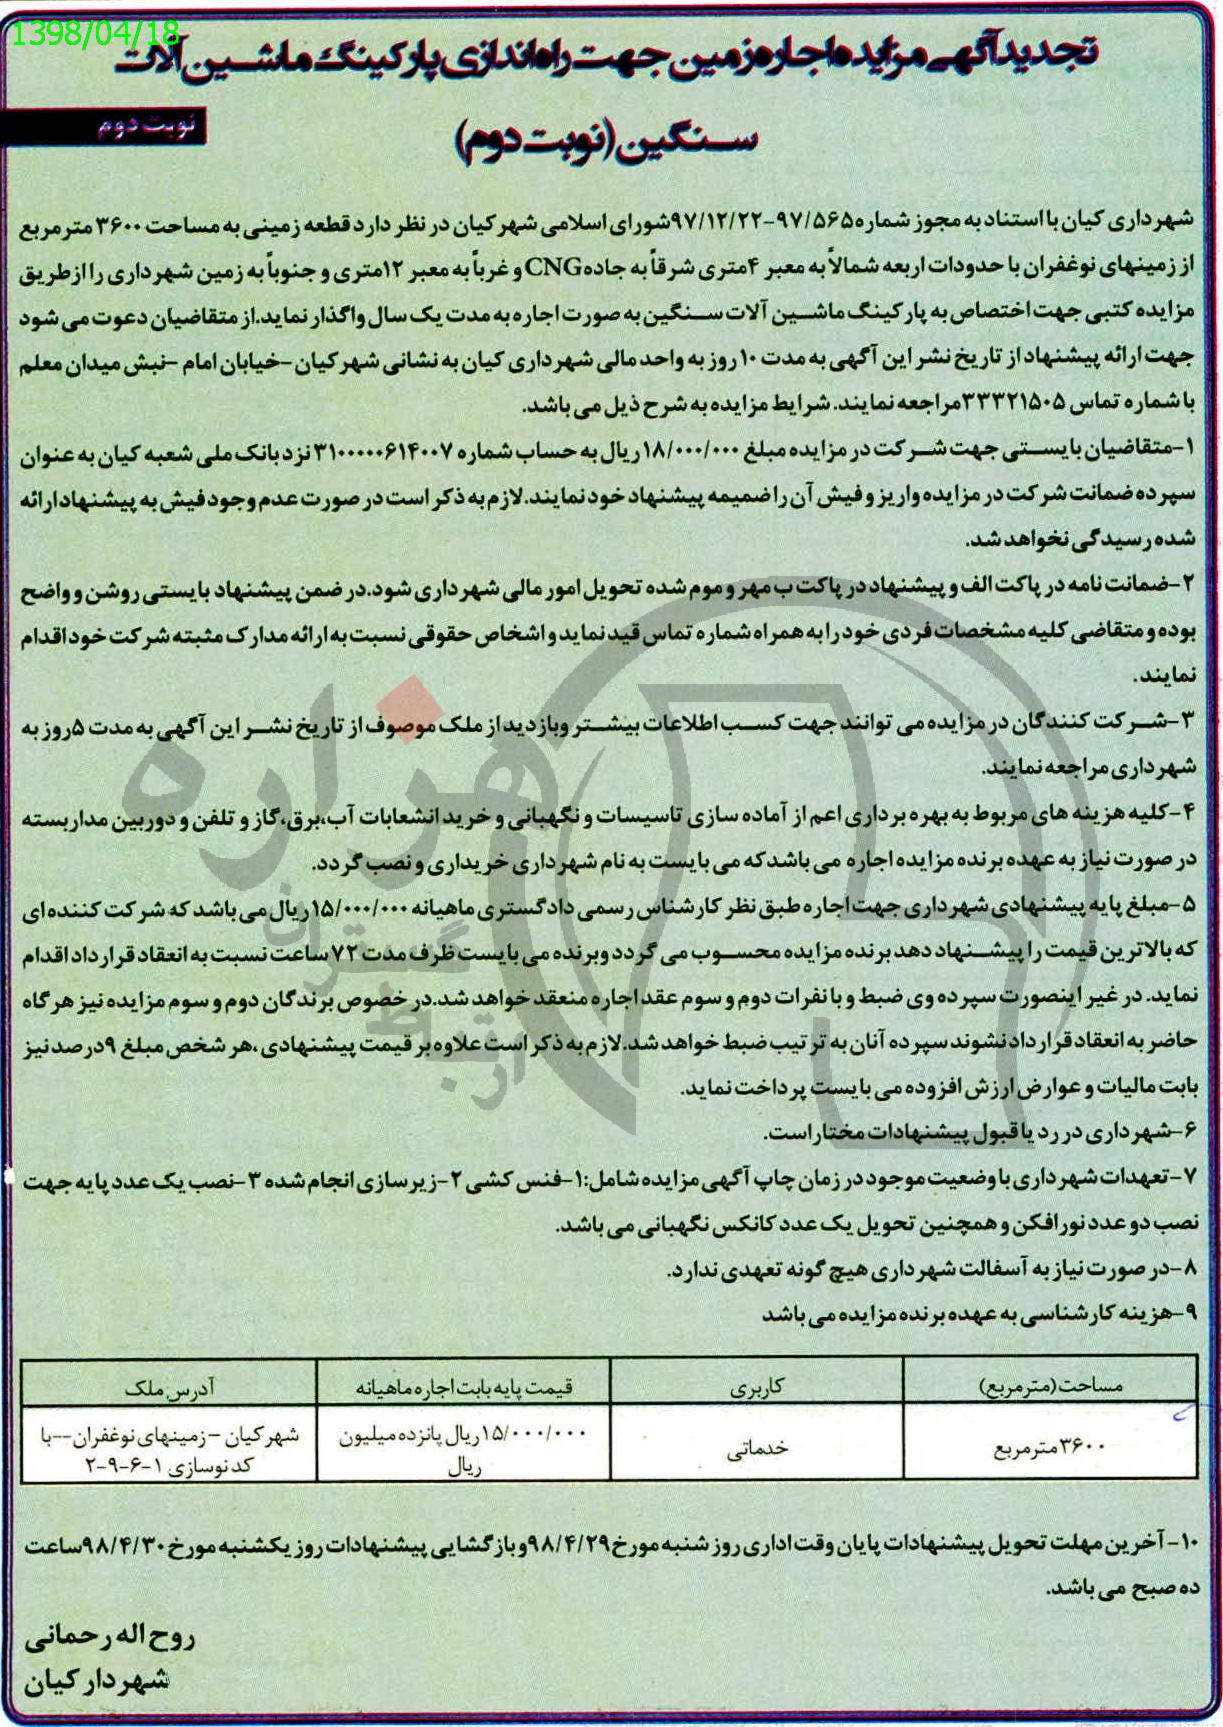 1398/04/18
تجدید آگهی مزایده اجاره زمین جهت راه اندازی پارکینگ ماشین آلات
سنگین (نوبت دوم)
نوبت دوم
شهرداری کیان با استناد به مجوز شماره ۹۷/۵۶۵-۹۷/۱۲/۲۲ شورای اسلامی شهر کیان در نظر دارد قطعه زمینی به مساحت ۳۶۰۰ متر مربع
از زمینهای نوغفران با حدودات اربعه شمالاً به معبر ۴ متری شرقاً به جاده CNG و غرباً به معبر ۱۲ متری و جنوباً به زمین شهرداری را از طریق
مزایده کتبی جهت اختصاص به پارکینگ ماشین آلات سنگین به صورت اجاره به مدت یک سال واگذار نماید. از متقاضیان دعوت می شود
جهت ارائه پیشنهاد از تاریخ نشر این آگهی به مدت ۱۰ روز به واحد مالی شهرداری کیان به نشانی شهر کیان -خیابان امام -نبش میدان معلم
با شماره تماس ۳۳۳۲۱۵۰۵ مراجعه نمایند. شرایط مزایده به شرح ذیل می باشد.
۱-متقاضیان بایستی جهت شرکت در مزایده مبلغ ۱۸/۰۰۰/۰۰۰ ریال به حساب شماره ۳۱۰۰۰۰۰۶۱۴۰۰۷ نزد بانک ملی شعبه کیان به عنوان
سپرده ضمانت شرکت در مزایده واریز و فیش آن را ضمیمه پیشنهاد خود نمایند. لازم به ذکر است در صورت عدم وجود فیش به پیشنهاد ارائه
شده رسیدگی نخواهد شد.
۲-ضمانت نامه در پاکت الف و پیشنهاد در پاکت ب مهر و موم شده تحویل امور مالی شهرداری شود. در ضمن پیشنهاد بایستی روشن و واضح
بوده و متقاضی کلیه مشخصات فردی خود را به همراه شماره تماس قید نماید و اشخاص حقوقی نسبت به ارائه مدارک مثبته شرکت خود اقدام
نمایند.
۳-شرکت کنندگان در مزایده می توانند جهت کسب اطلاعات بیشتر و بازدید از ملک موصوف از تاریخ نشر این آگهی به مدت ۵ روز به
شهرداری مراجعه نمایند.
۴-کلیه هزینه های مربوط به بهره برداری اعم از آماده سازی تاسیسات و نگهبانی و خرید انشعابات آب، برق، گاز و تلفن و دوربین مدار بسته
در صورت نیاز به عهده برنده مزایده اجاره می باشد که می بایست به نام شهرداری خریداری و نصب گردد.
۵-مبلغ پایه پیشنهادی شهرداری جهت اجاره طبق نظر کارشناس رسمی دادگستری ماهیانه ۱۵/۰۰۰/۰۰۰ ریال می باشد که شرکت کننده ای
که بالاترین قیمت را پیشنهاد دهد برنده مزایده محسوب می گردد و برنده می بایست ظرف مدت ۷۲ ساعت نسبت به انعقاد قرارداد اقدام
نماید. در غیر اینصورت سپرده وی ضبط و با نفرات دوم و سوم عقد اجاره منعقد خواهد شد. در خصوص برندگان دوم و سوم مزایده نیز هرگاه
حاضر به انعقاد قرارداد نشوند سپرده آنان به ترتیب ضبط خواهد شد. لازم به ذکر است علاوه بر قیمت پیشنهادی، هر شخص مبلغ ۹ درصد نیز
بابت مالیات و عوارض ارزش افزوده می بایست پرداخت نماید.
۶-شهرداری در رد یا قبول پیشنهادات مختار است.
۷-تعهدات شهرداری با وضعیت موجود در زمان چاپ آگهی مزایده شامل: ۱-فنس کشی ۲-زیرسازی انجام شده ۳-نصب یک عدد پایه جهت
نصب دو عدد نورافکن و همچنین تحویل یک عدد کانکس نگهبانی می باشد.
۸-در صورت نیاز به آسفالت شهرداری هیچ گونه تعهدی ندارد.
۹-هزینه کارشناسی به عهده برنده مزایده می باشد
مساحت (متر مربع) کاربری قیمت پایه بابت اجاره ماهیانه آدرس ملک
۳۶۰۰ متر مربع خدماتی ۱۵/۰۰۰/۰۰۰ ریال پانزده میلیون ریال شهر کیان -زمینهای نوغفران--با کد نوسازی ۱-۶-۹-۲
۱۰-آخرین مهلت تحویل پیشنهادات پایان وقت اداری روز شنبه مورخ ۹۸/۴/۲۹ و بازگشایی پیشنهادات روز یکشنبه مورخ ۹۸/۴/۳۰ ساعت
ده صبح می باشد.
روح اله رحمانی
شهردار کیان
هزاره